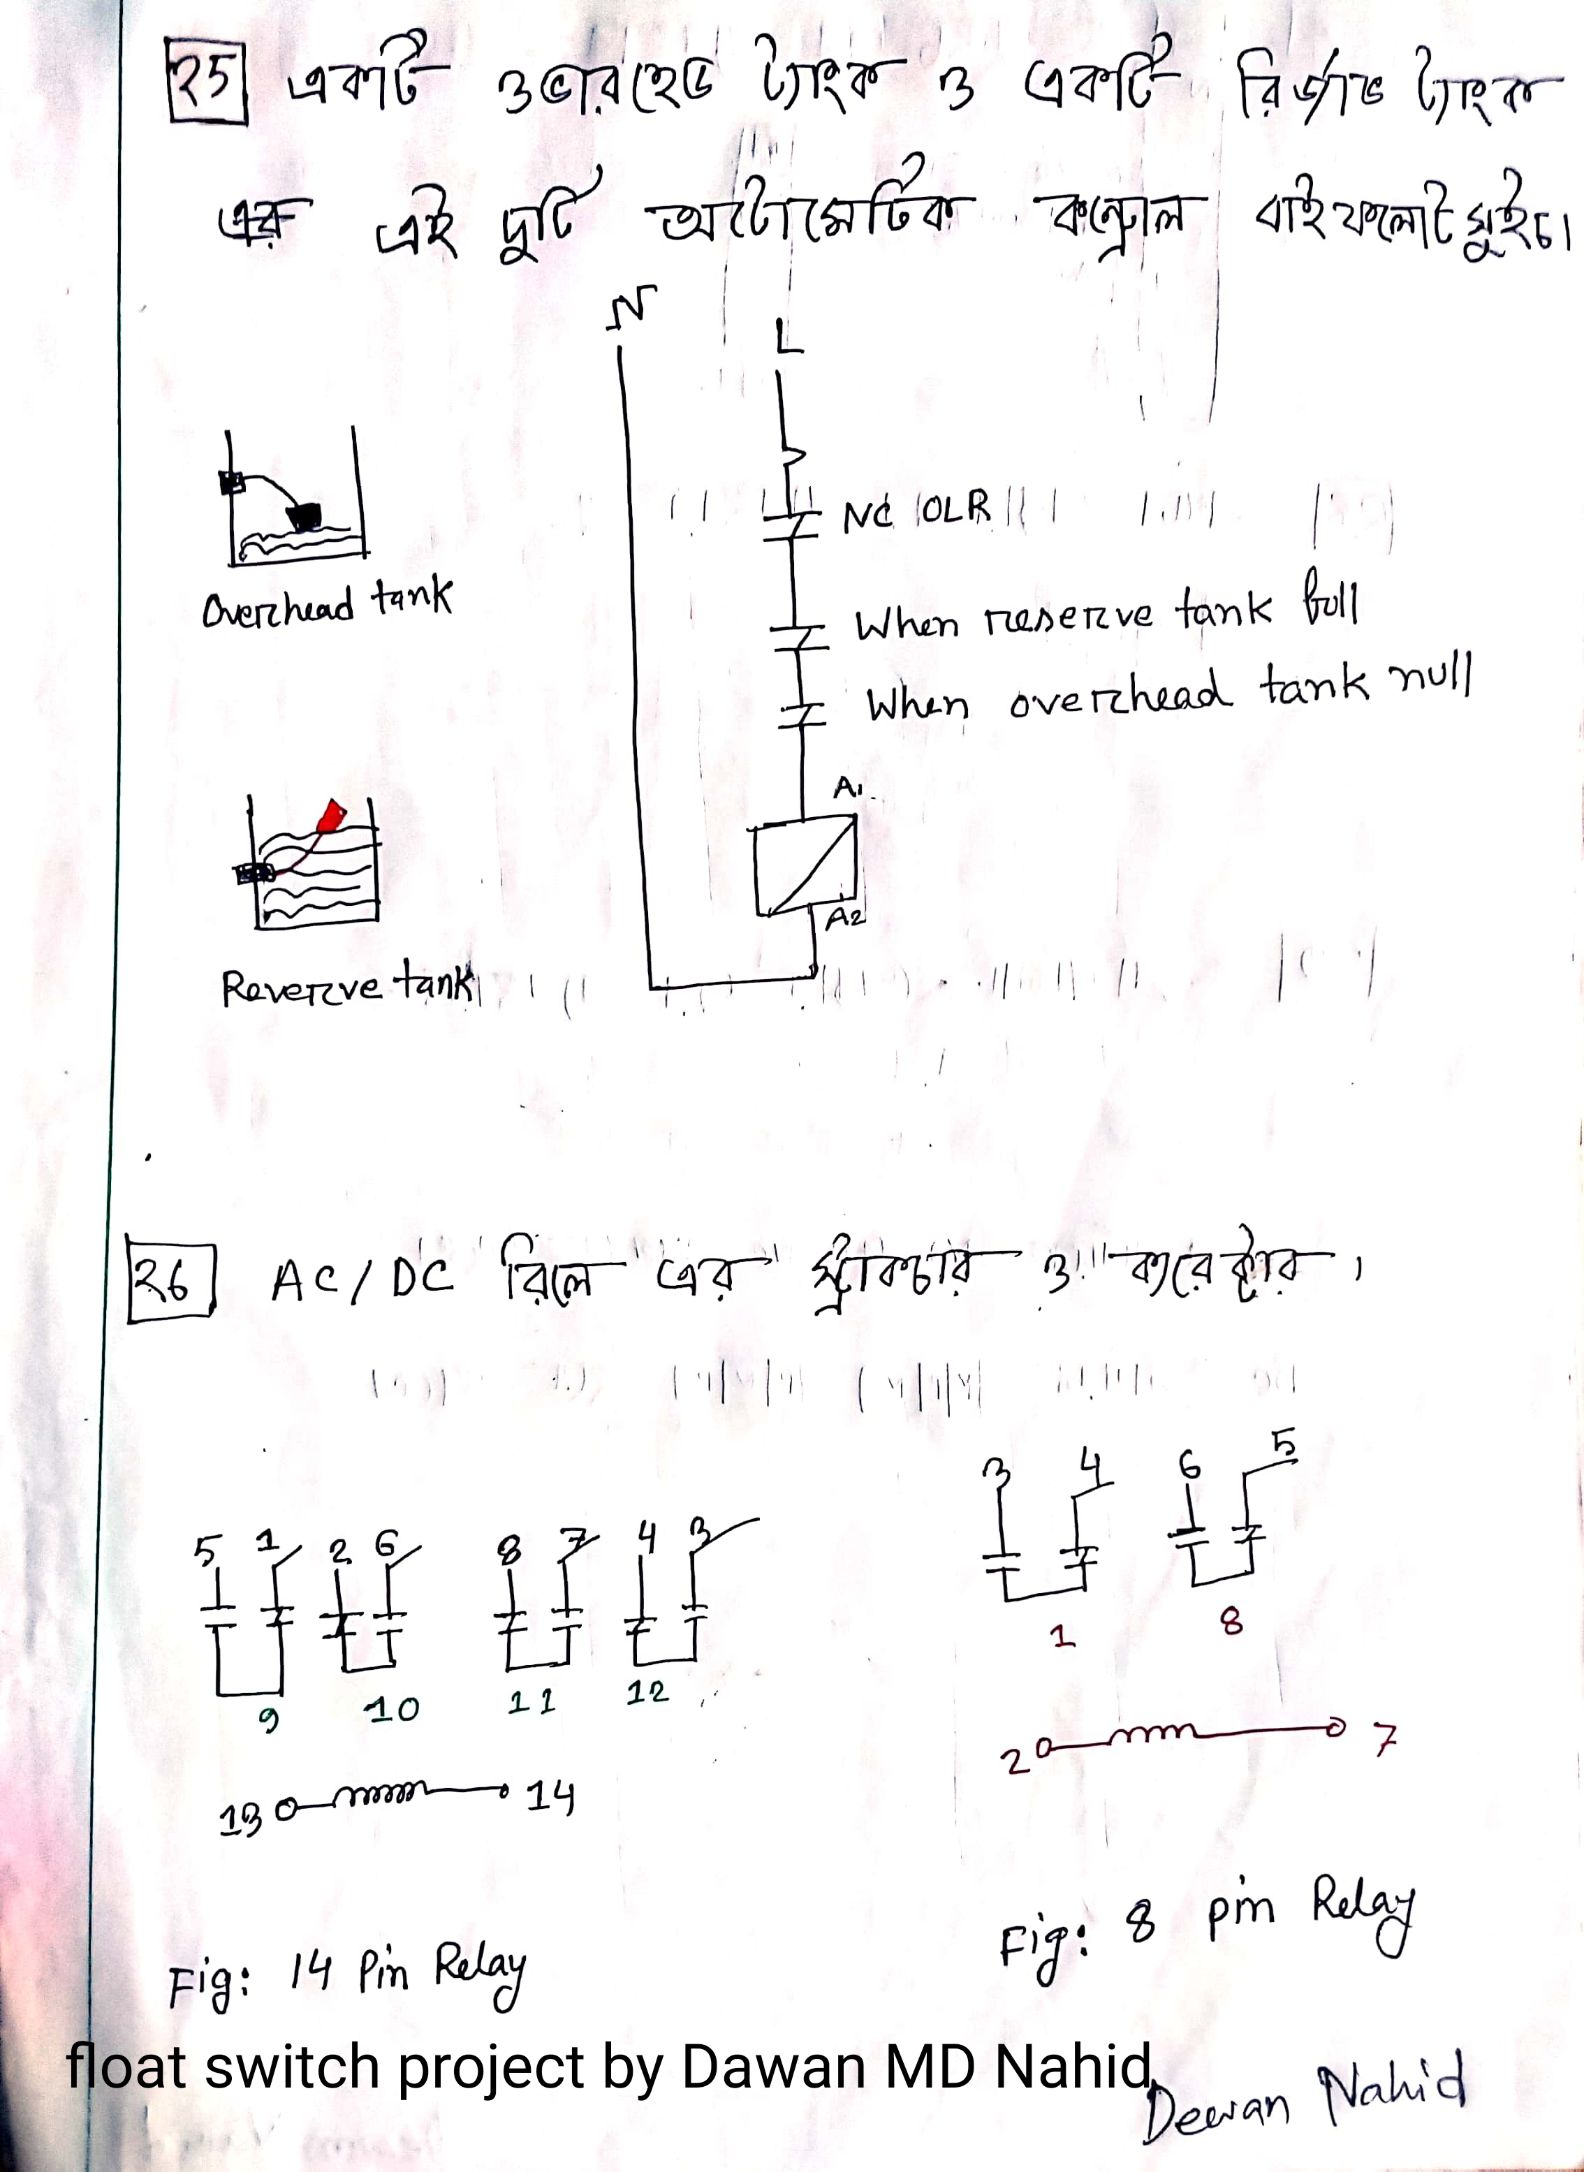 ২5 একটি ওভারহেড ট্যাংক ও একটি রিজার্ভ ট্যাংক
এর এই দুটি অটোমেটিক কন্ট্রোল বাই ফলোট সুইচ।
N
L
NC OLR
Overhead tank
When reserve tank full
When overhead tank null
A1
A2
Reverve tank
২6 AC/DC রিলে এর স্ট্রাকচার ও ক্যারেক্টার।
3 4 6 5
5 1 2 6 8 7 4 3
1 8
9 10 11 12
2 7
13 14
Fig: 14 Pin Relay
Fig: 8 pin Relay
float switch project by Dawan MD Nahid
Dewan Nahid